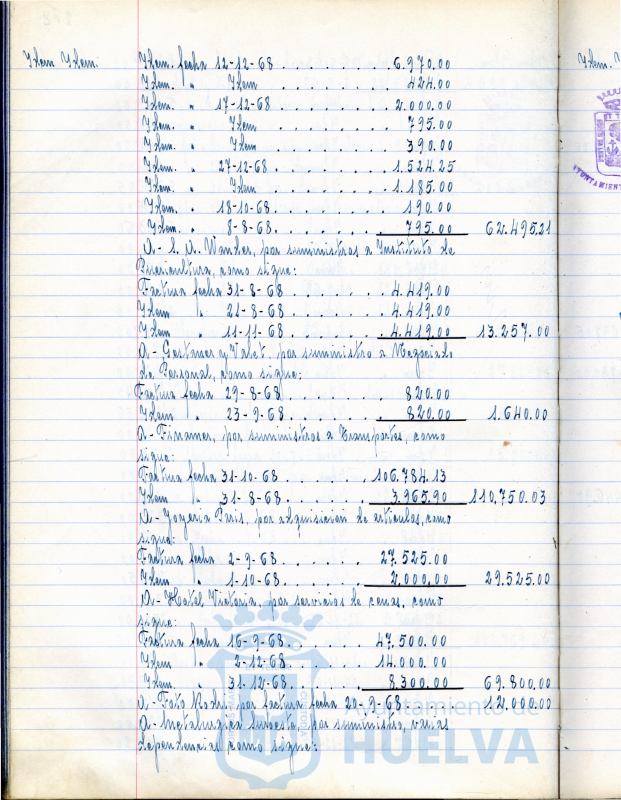 Idem Idem.
Idem. fecha 12-12-68 . . . . . . . . 6.970.00
Idem. " Idem . . . . . . . . 424.00
Idem. " 17-12-68 . . . . . . . . 2.000.00
Idem. " Idem . . . . . . . . 795.00
Idem. " Idem . . . . . . . . 390.00
Idem. " 27-12-68 . . . . . . . . 1.524.25
Idem. " Idem . . . . . . . . 1.185.00
Idem. " 18-10-68 . . . . . . . . 190.00
Idem. " 8-8-68 . . . . . . . . 795.00 62.495,21
A- S. A. Wander, por suministros a Instituto de
Puericultura, como sigue:
Factura fecha 31-8-68 . . . . . . 4.419.00
Idem " 21-8-68 . . . . . . 4.419.00
Idem " 11-11-68 . . . . . . 4.419.00 13.257.00
A- Gestamer y Valet. por suministro a Negociado
de Personal, como sigue:
Factura fecha 29-8-68 . . . . . . 820.00
Idem " 23-9-68 . . . . . . 820.00 1.640.00
A- Finamer, por suministros a Transportes, como
sigue:
Factura fecha 31-10-68 . . . . . . 106.784.13
Idem " 31-8-68 . . . . . . 3.965.90 110,750.03
A- Joyeria Paris, por adquisicion de articulos, como
sigue:
Factura fecha 2-9-68 . . . . . . 27.525.00
Idem " 1-10-68 . . . . . . 2,000,00 29.525.00
A- Hotel Victoria, por servicios de cenas, como
sigue:
Factura fecha 16-9-68 . . . . . . 47,500.00
Idem " 2-12-68 . . . . . . 14.000.00
Idem. " 31-12-68 . . . . . . 8,300.00 69.800.00
A- Foto Rodri, por factura fecha 20-9-68 12,000.00
A- Metalurgica suroeste, por suministro, varias
dependencias como sigue:
Ayuntamiento de
HUELVA
Idem.
AYUNTAMIEN